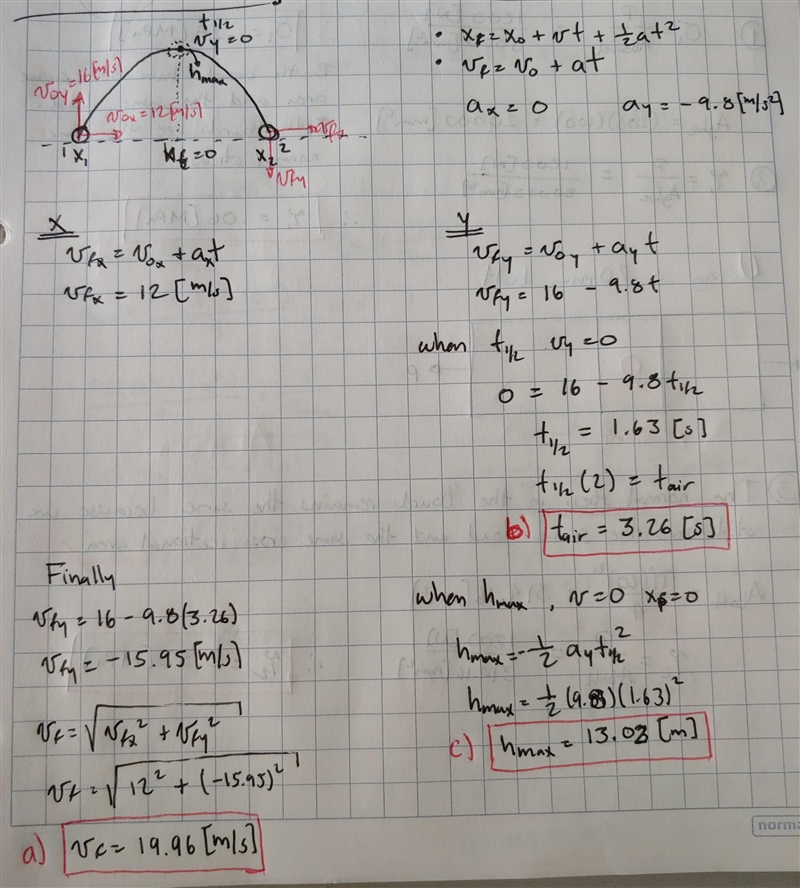 t₁/₂
v_y = 0
h_max
v_0y = 16 [m/s]
v_0x = 12 [m/s]
v_fx
1 x₁
x_f = 0
x₂ 2
v_fy
• x_f = x_0 + vt + ½at²
• v_f = v_0 + at
a_x = 0 a_y = -9.8 [m/s²]
x
v_fx = v_0x + a_x t
v_fx = 12 [m/s]
y
v_fy = v_0y + a_y t
v_fy = 16 - 9.8t
when t₁/₂ v_y = 0
0 = 16 - 9.8 t₁/₂
t₁/₂ = 1.63 [s]
t₁/₂ (2) = t_air
b) t_air = 3.26 [s]
Finally
v_fy = 16 - 9.8(3.26)
v_fy = -15.95 [m/s]
v_f = √(v_fx² + v_fy²)
v_f = √(12² + (-15.95)²)
a) v_f = 19.96 [m/s]
when h_max, v = 0 x_f = 0
h_max = -½ a_y t₁/₂²
h_max = ½ (9.8)(1.63)²
c) h_max = 13.03 [m]
norma